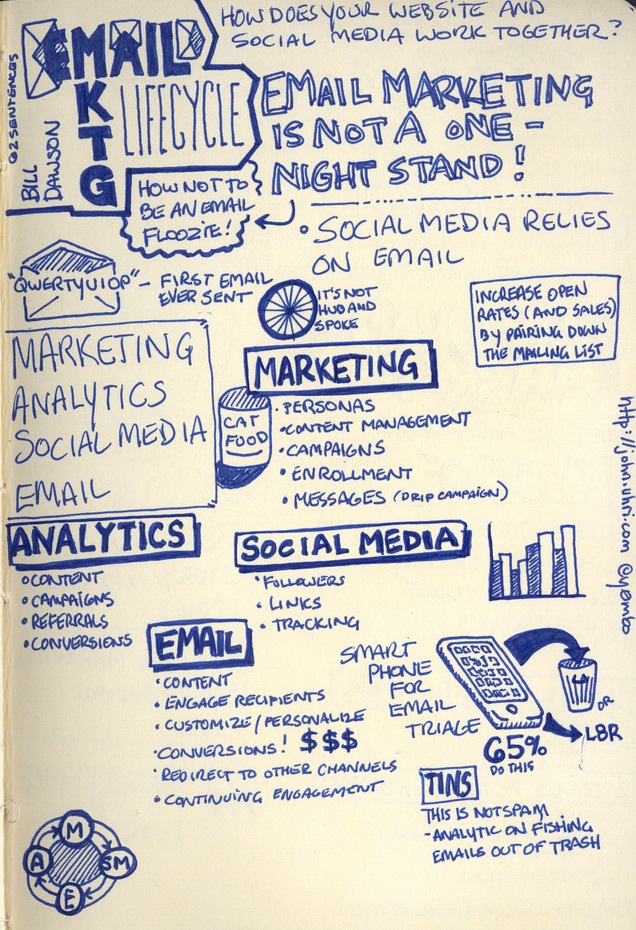 HOW DOES YOUR WEBSITE AND
SOCIAL MEDIA WORK TOGETHER?
62SENTENCES
EMAIL
MKTG
LIFECYCLE
BILL
DAWSON
EMAIL MARKETING
IS NOT A ONE-
NIGHT STAND!
HOW NOT TO
BE AN EMAIL
FLOOZIE!
• SOCIAL MEDIA RELIES
ON EMAIL
"QWERTYUIOP" - FIRST EMAIL
EVER SENT
IT'S NOT
HUB AND
SPOKE
INCREASE OPEN
RATES (AND SALES)
BY PAIRING DOWN
THE MAILING LIST
MARKETING
ANALYTICS
SOCIAL MEDIA
EMAIL
MARKETING
CAT
FOOD
• PERSONAS
• CONTENT MANAGEMENT
• CAMPAIGNS
• ENROLLMENT
• MESSAGES (DRIP CAMPAIGN)
ANALYTICS
• CONTENT
• CAMPAIGNS
• REFERRALS
• CONVERSIONS
SOCIAL MEDIA
• FOLLOWERS
• LINKS
• TRACKING
EMAIL
• CONTENT
• ENGAGE RECIPIENTS
• CUSTOMIZE/PERSONALIZE
• CONVERSIONS! $$$
• REDIRECT TO OTHER CHANNELS
• CONTINUING ENGAGEMENT
SMART
PHONE
FOR
EMAIL
TRIAGE
OR
L8R
65%
DO THIS
TINS
THIS IS NOT SPAM
- ANALYTIC ON FISHING
EMAILS OUT OF TRASH
M
A
SM
E
http://john.uhri.com @yembo